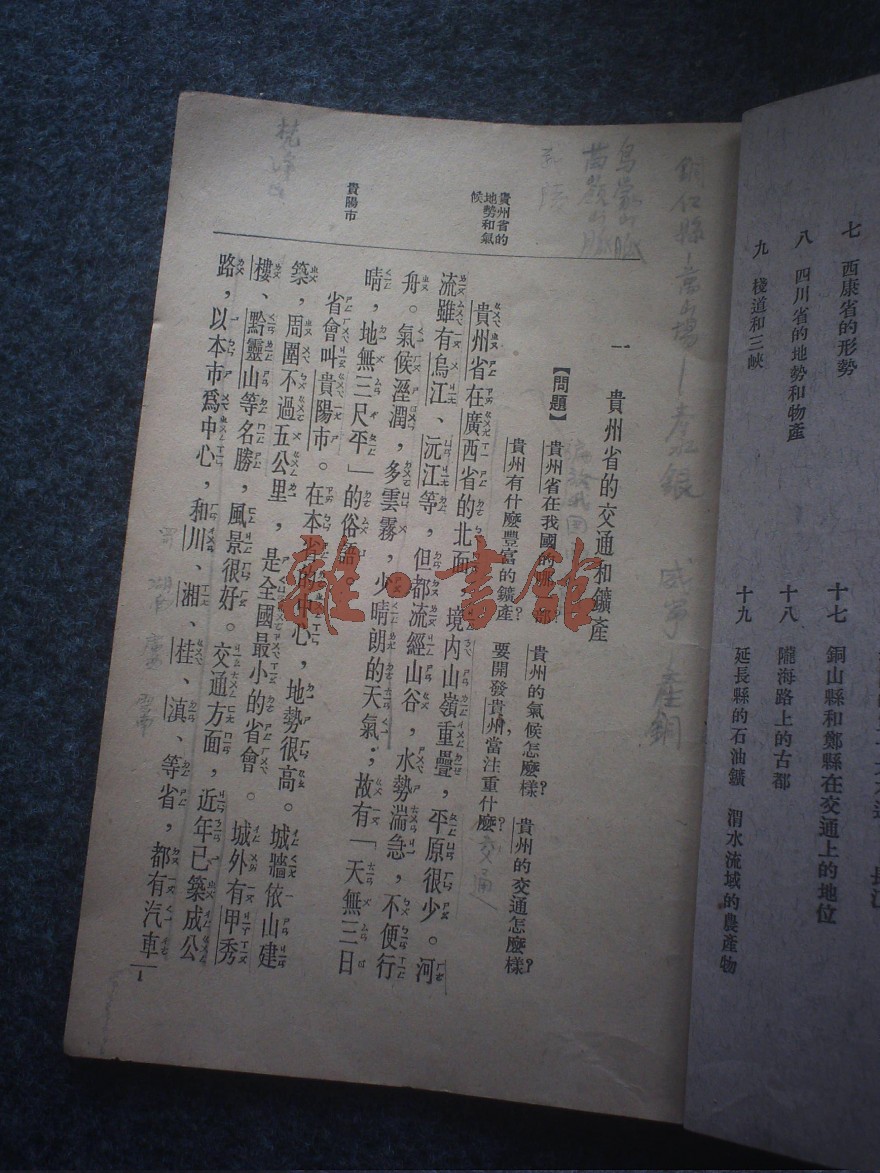 七　西康省的形勢
八　四川省的地勢和物產
九　棧道和三峽
十七　銅山縣和鄭縣在交通上的地位
十八　隴海路上的古都
十九　延長縣的石油鑛　渭水流域的農產物
銅仁縣—萬山場—產水銀
威寧　產銅
烏蒙山脈
苗嶺山脈
梵淨山
一　貴州省的交通和鑛產
【問題】　貴州省在我國的部？　貴州的氣候怎麼樣？　貴州的交通怎麼樣？
貴州有什麼豐富的鑛產？　要開發貴州當注重什麼？
交通
貴州省的地勢和氣候
貴州省在廣西省的北面，境內山嶺重疊，平原很少。河
流雖有烏江、沅江等，但都流經山谷，水勢湍急，不便行
舟。氣候溼潤，多雲霧，少晴朗的天氣；故有「天無三日
晴，地無三尺平」的俗語
貴陽市
省會叫貴陽市。在本省的中心，地勢很高。城牆依山建
築，周圍不過五公里，是全國最小的省會。城外有甲秀
樓、黔靈山等名勝，風景很好。交通方面，近年已築成公
路，以本市爲中心，和川、湘、桂、滇、等省，都有汽車
1
雜·書館